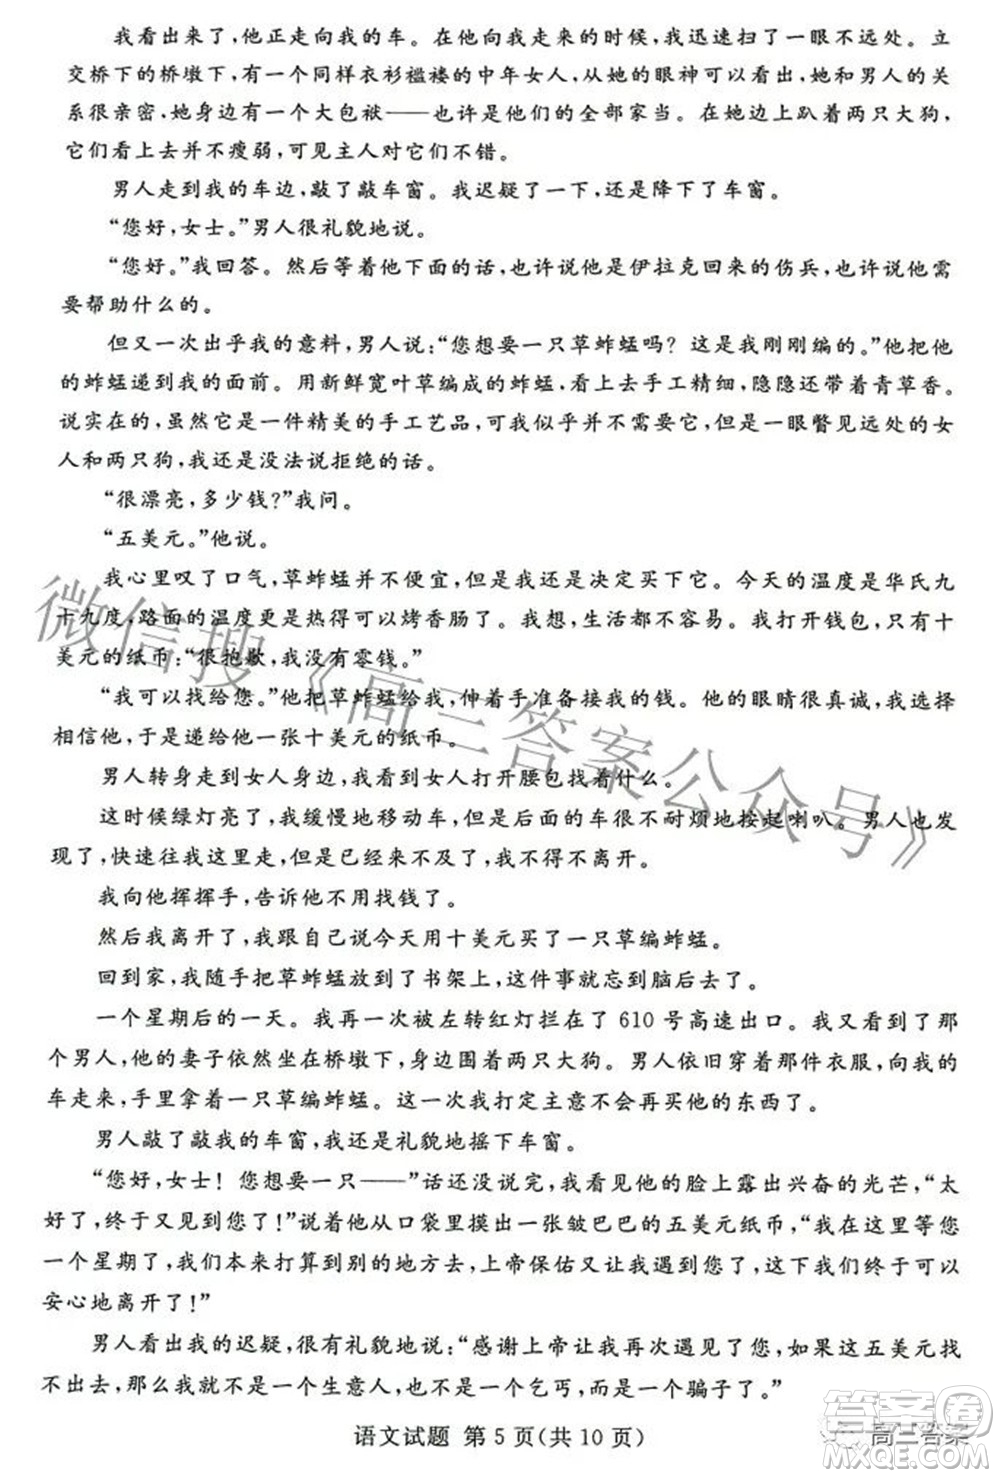 我看出来了,他正走向我的车。在他向我走来的时候,我迅速扫了一眼不远处。立
交桥下的桥墩下,有一个同样衣衫褴褛的中年女人,从她的眼神可以看出,她和男人的关
系很亲密,她身边有一个大包袱——也许是他们的全部家当。在她边上趴着两只大狗,
它们看上去并不瘦弱,可见主人对它们不错。
男人走到我的车边,敲了敲车窗。我迟疑了一下,还是降下了车窗。
“您好,女士。”男人很礼貌地说。
“您好。”我回答。然后等着他下面的话,也许说他是伊拉克回来的伤兵,也许说他需
要帮助什么的。
但又一次出乎我的意料,男人说:“您想要一只草蚱蜢吗?这是我刚刚编的。”他把他
的蚱蜢递到我的面前。用新鲜宽叶草编成的蚱蜢,看上去手工精细,隐隐还带着青草香。
说实在的,虽然它是一件精美的手工艺品,可我似乎并不需要它。但是一眼瞥见远处的女
人和两只狗,我还是没法说拒绝的话。
“很漂亮,多少钱?”我问。
“五美元。”他说。
我心里叹了口气,草蚱蜢并不便宜,但是还是决定买下它。今天的温度是华氏九
十九度,路面的温度更是热得可以烤香肠了。我想,生活都不容易。我打开钱包,只有十
美元的纸币:“很抱歉,我没有零钱。”
“我可以找给您。”他把草蚱蜢给我,伸着手准备接我的钱。他的眼睛很真诚,我选择
相信他,于是递给他一张十美元的纸币。
男人转身走到女人身边,我看到女人打开腰包找着什么。
这时候绿灯亮了,我缓慢地移动车,但是后面的车很不耐烦地按起喇叭。男人也发
现了,快速往我这里走,但是已经来不及了,我不得不离开。
我向他挥挥手,告诉他不用找钱了。
然后我离开了,我跟自己说今天用十美元买了一只草编蚱蜢。
回到家,我随手把草蚱蜢放到了书架上,这件事就忘到脑后去了。
一个星期后的一天。我再一次被左转红灯拦在了 610 号高速出口。我又看到了那
个男人,他的妻子依然坐在桥墩下,身边围着两只大狗。男人依旧穿着那件衣服,向我的
车走来,手里拿着一只草编蚱蜢。这一次我打定主意不会再买他的东西了。
男人敲了敲我的车窗,我还是礼貌地摇下车窗。
“您好,女士!您想要一只——”话还没说完,我看见他的脸上露出兴奋的光芒,“太
好了,终于又见到您了!”说着他从口袋里摸出一张皱巴巴的五美元纸币,“我在这里等您
一个星期了,我们本来打算到别的地方去,上帝保佑又让我遇到您了,这下我们终于可以
安心地离开了!”
男人看出我的迟疑,很有礼貌地说:“感谢上帝让我再次遇见了您,如果这五美元找
不出去,那么我就不是一个生意人,也不是一个乞丐,而是一个骗子了。”
语文试题 第 5 页(共 10 页)
微信搜《高三答案公众号》
答案圈
高三答案
MXQE.COM